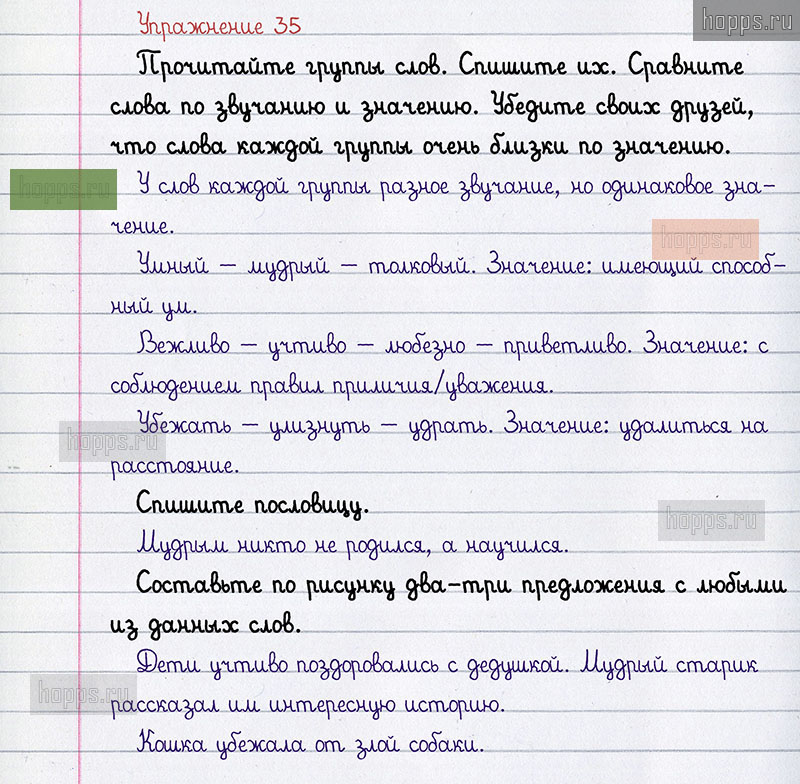 Упражнение 35
hopps.ru
Прочитайте группы слов. Спишите их. Сравните
слова по звучанию и значению. Убедите своих друзей,
что слова каждой группы очень близки по значению.
hopps.ru
У слов каждой группы разное звучание, но одинаковое зна-
чение.
hopps.ru
Умный – мудрый – толковый. Значение: имеющий способ-
ный ум.
Вежливо – учтиво – любезно – приветливо. Значение: с
соблюдением правил приличия/уважения.
Убежать – улизнуть – удрать. Значение: удалиться на
hopps.ru
расстояние.
Спишите пословицу.
hopps.ru
Мудрым никто не родился, а научился.
Составьте по рисунку два-три предложения с любыми
из данных слов.
Дети учтиво поздоровались с дедушкой. Мудрый старик
hopps.ru
рассказал им интересную историю.
Кошка убежала от злой собаки.